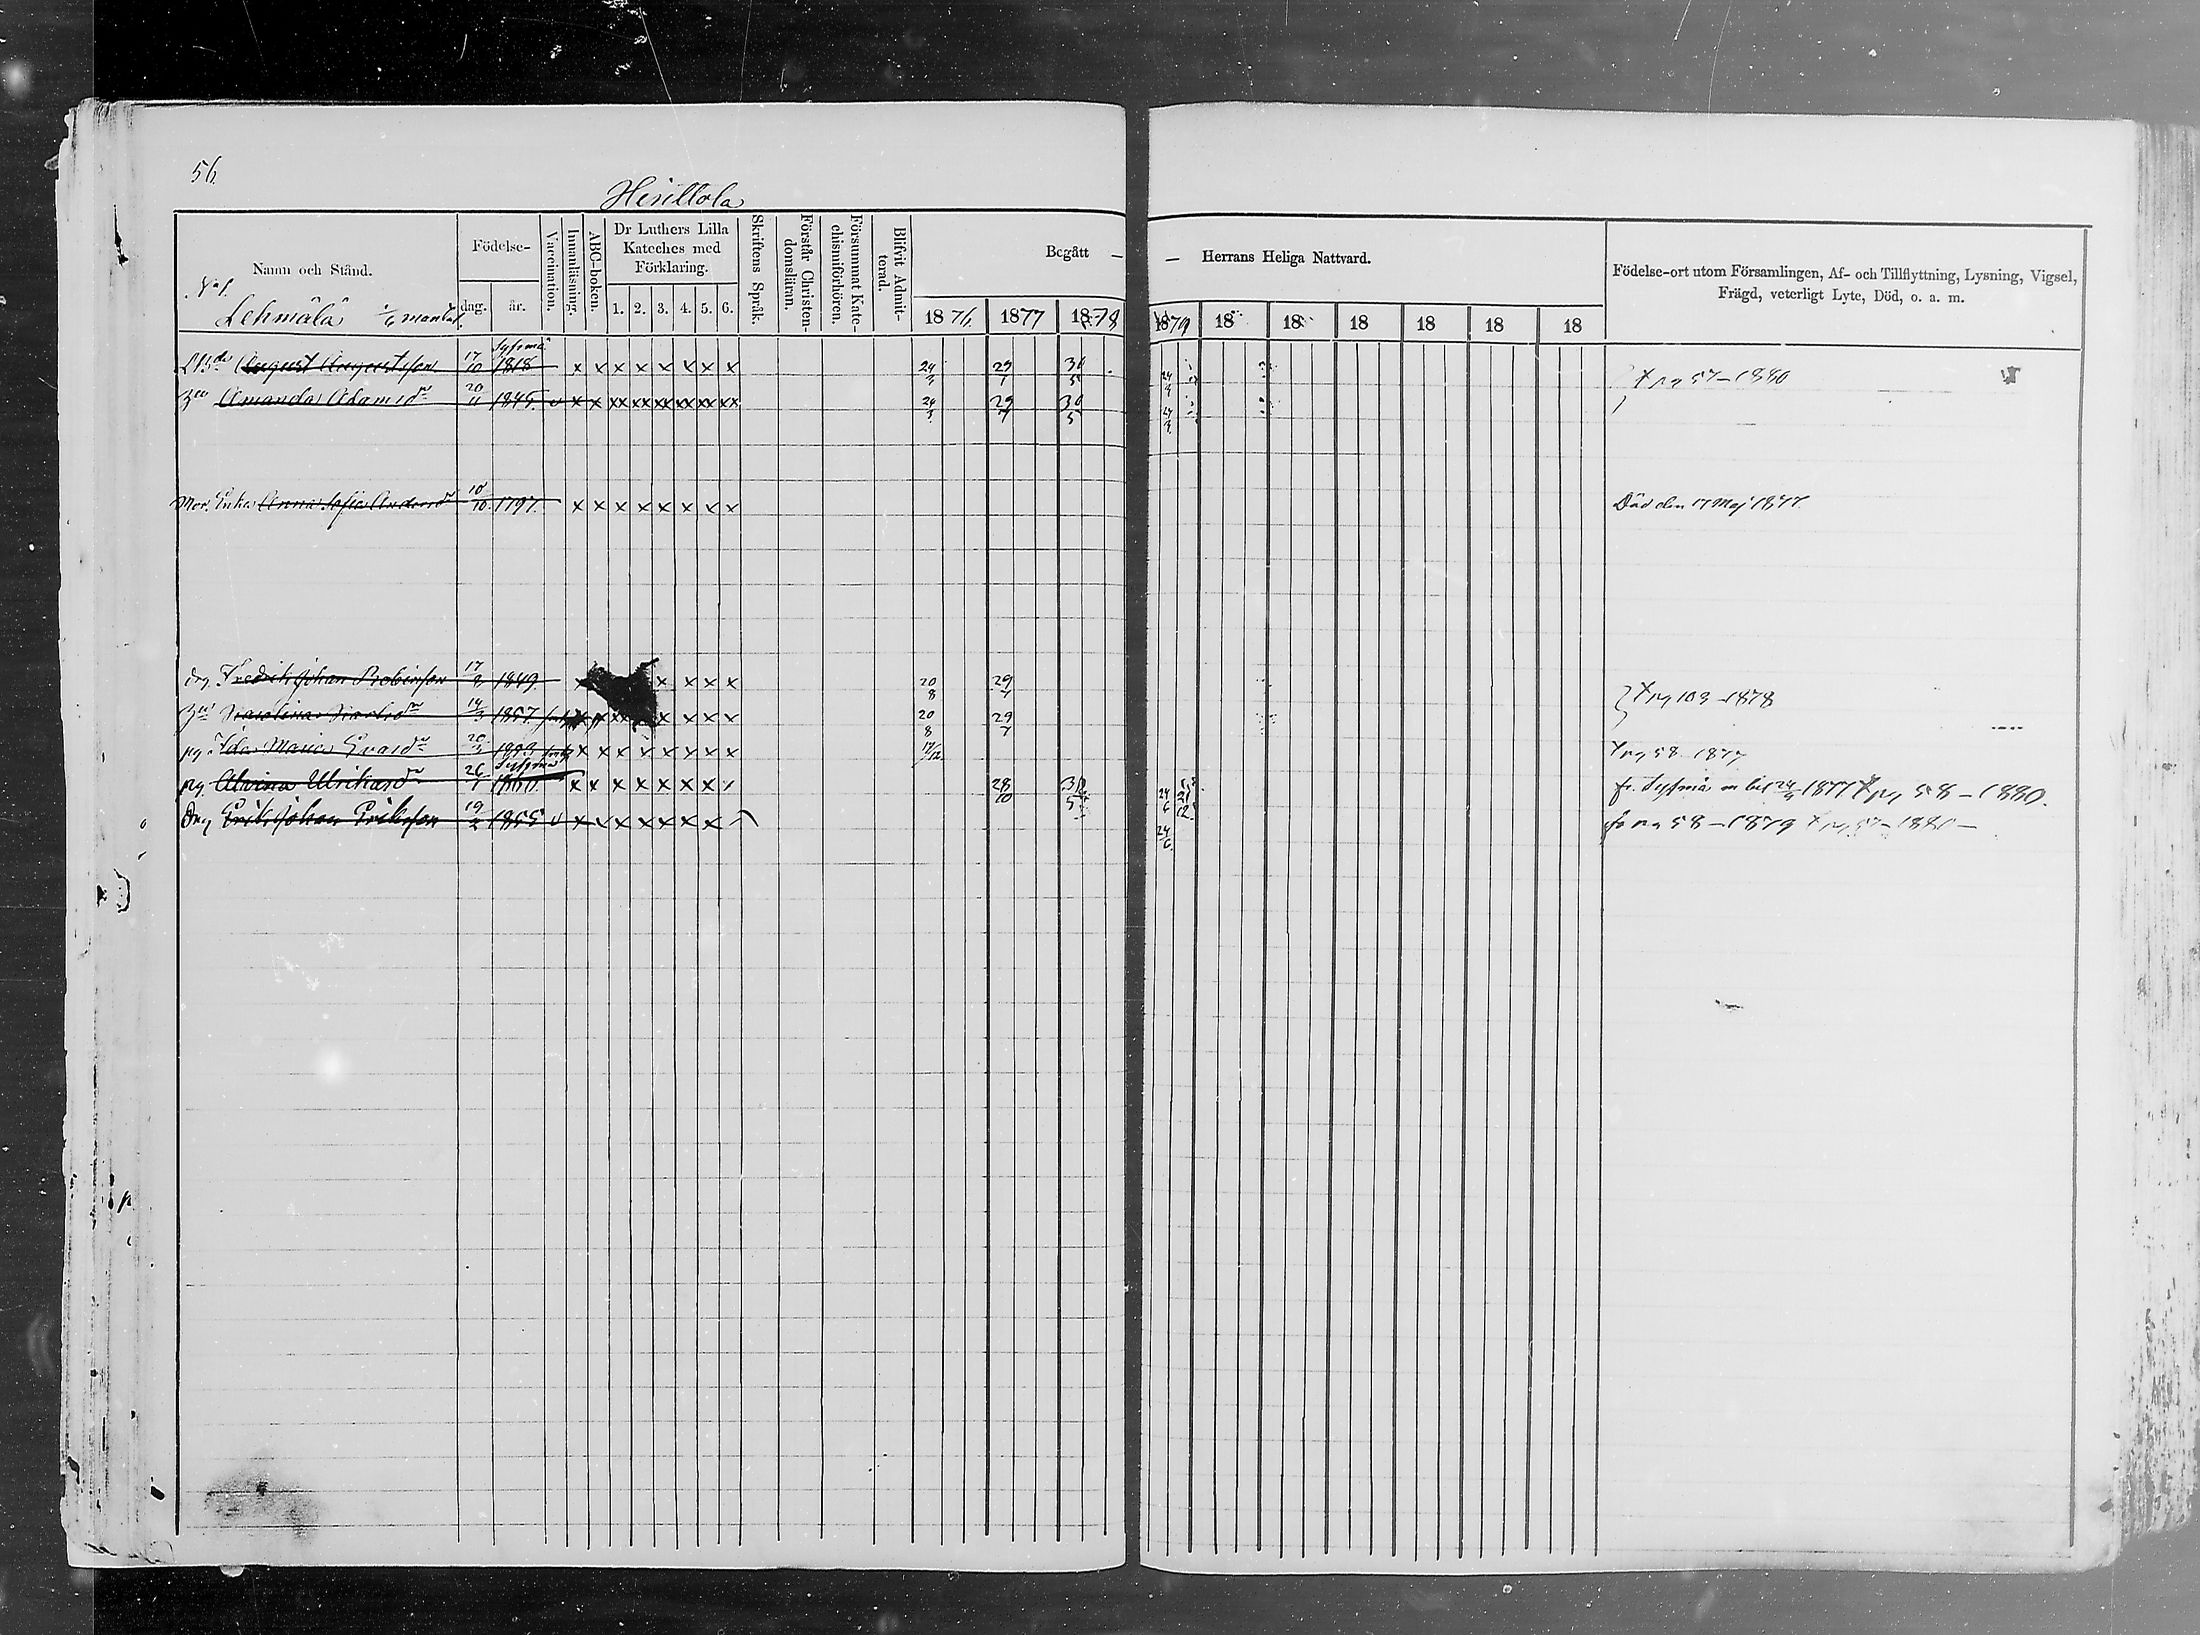 56.
Hesillola
Namn och Stånd.
Födelse-
dag.
år.
Vaccination.
Innanläsning.
ABC-boken.
Dr Luthers Lilla Kateches med Förklaring.
1. 2. 3. 4. 5. 6.
Skriftens Språk.
Förstår Christen-domsläran.
Försummat Kate-chismiförhören.
Blifvit Admit-terad.
Begått — — Herrans Heliga Nattvard.
1876. 1877 1878 1879 18 18 18 18 18 18
Födelse-ort utom Församlingen, Af- och Tillflyttning, Lysning, Vigsel, Frägd, veterligt Lyte, Död, o. a. m.
No 1.
Lehmälä 1/6 mantal.
August Augustsson 17/10 Sysmä 1818 x x x x x x x x 24/3 29/7 30/5 24/3 pg 57–1880
Amanda Adamsdr 20/11 1845 v x x xx xx xx xx xx xx 24/3 29/7 30/5 24/3
Mor. Enka Anna Sofia Andersdr 10/10 1797. x x x x x x x x Död den 17 Maj 1877.
drg. Fredrik Johan Robinsson 17/2 1849. x x x x x 20/8 29/7 pg 103–1878
14/3 1857. x x x 20/8 29/7
pg. Ida Maria 20/3 1853 x x x x x x x x 17/12 pg 58 1877
pg. Alvina Ulrikasdr 26/7 Sysmä 1860. x x x x x x x 28/10 30/5 24/6 21/12 fr. Sysmä m bet 24/4 1877 pg 58–1880.
Drg Erik Johan Eriksson 19/2 1855 v x x x x x x x 24/6 fr pg 58–1879 pg 57–1881–